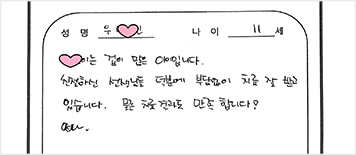 성 명 우 인 나 이 11 세
이는 겁이 많은 아이입니다.
친절하신 선생님들 덕분에 부담없이 치료 잘 받고
있습니다. 물론 치료 결과도 만족 합니다?